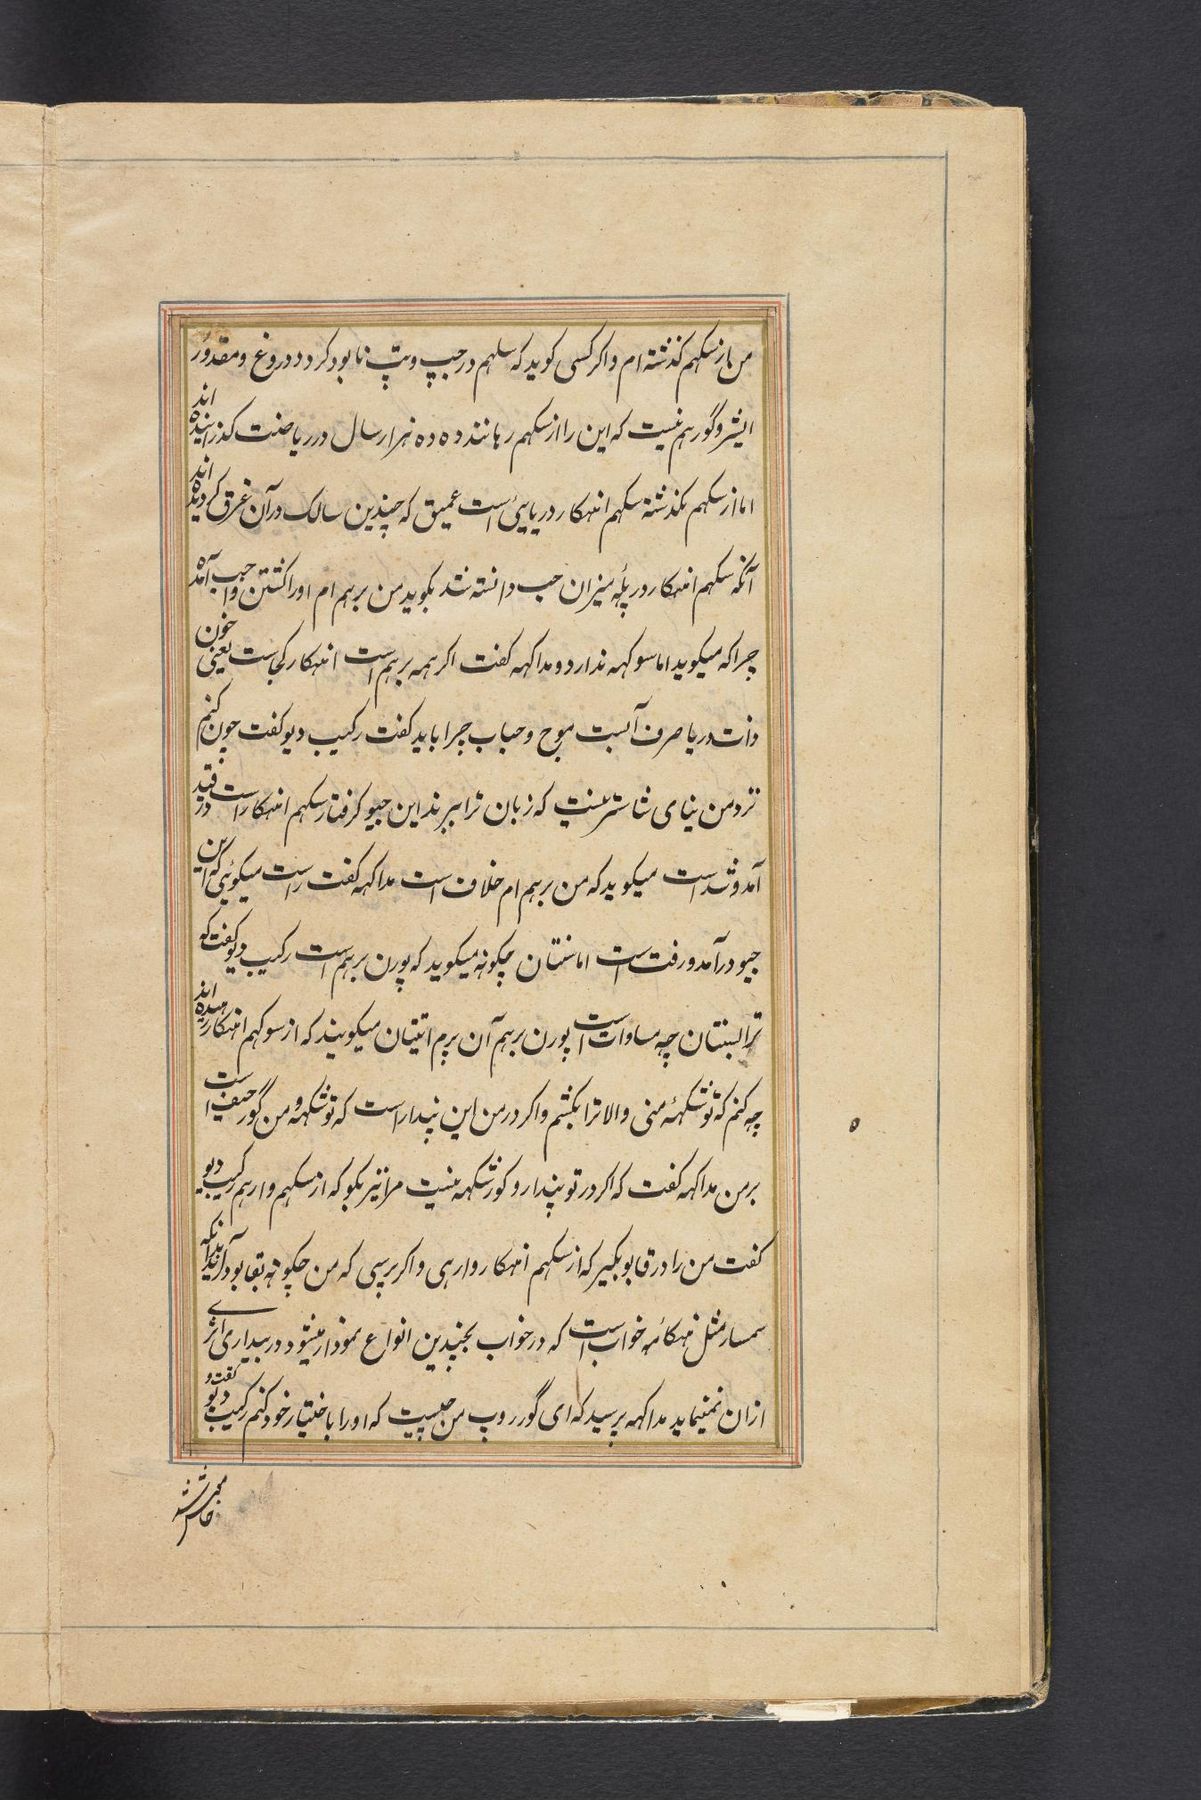 من باز سکهم گذشته ام و اگر کسی گوید که سکهم در جپ و تپ نابود گردد دروغ و مقدور
ایشر و گور هم نیست که این را از سکهم رهانند ده ده هزار سال در ریاضت گذرانیده اند
اما از سکهم نگذشته سکهم انهکار دریایی است عمیق که چندین سالک در آن غرق گردیده اند
آنکه سکهم انهکار در پله میزان جب دانسته شد بگوید من برهم ام او را کشتن واجب آمده
چرا که میگوید اما سوکهه ندارد و مداکهه گفت اگر همه برهم است انهکار کجاست یعنی خون
ذات دریا صرف آبست موج و حباب چرا باید گفت رکیب دیو گفت چون کنم
نزد من نیای شاستر نیست که زبان ترا ببرند این جیو گرفتار سکهم انهکار است در قید
آمد و شد است میگوید که من برهم ام خلاف است مداکهه گفت راست میگوئی که این
جیو در آمد و رفت است اما سنتان چگونه میگوید که پورن برهم است رکیب دیو گفت که
ترا بسنتان چه مساوات است پورن برهم آن پرم اتیتان میگویند که از سوکهم انهکار رهیده اند
چه کنم که تو شکههٔ منی والا ترا بکشم و اگر در من این پندار است که تو شکهه و من گور حیف است
بر من مداکهه گفت که اگر در تو پندار و گور شکهه نیست مرا نیز بگو که از سکهم وارهم رکیب دیو
گفت من را در قابو بگیر که از سکهم انهکار وارهی و اگر پرسی که من چگونه بقابو در آید بدانکه
سمسار مثل هنگامه خواب است که در خواب بچندین انواع نمودار میشود در بیداری اثری
از آن نمینماید مداکهه پرسید که ای گور روپ من چیست که او را باختیار خود کنم رکیب دیو گفت و